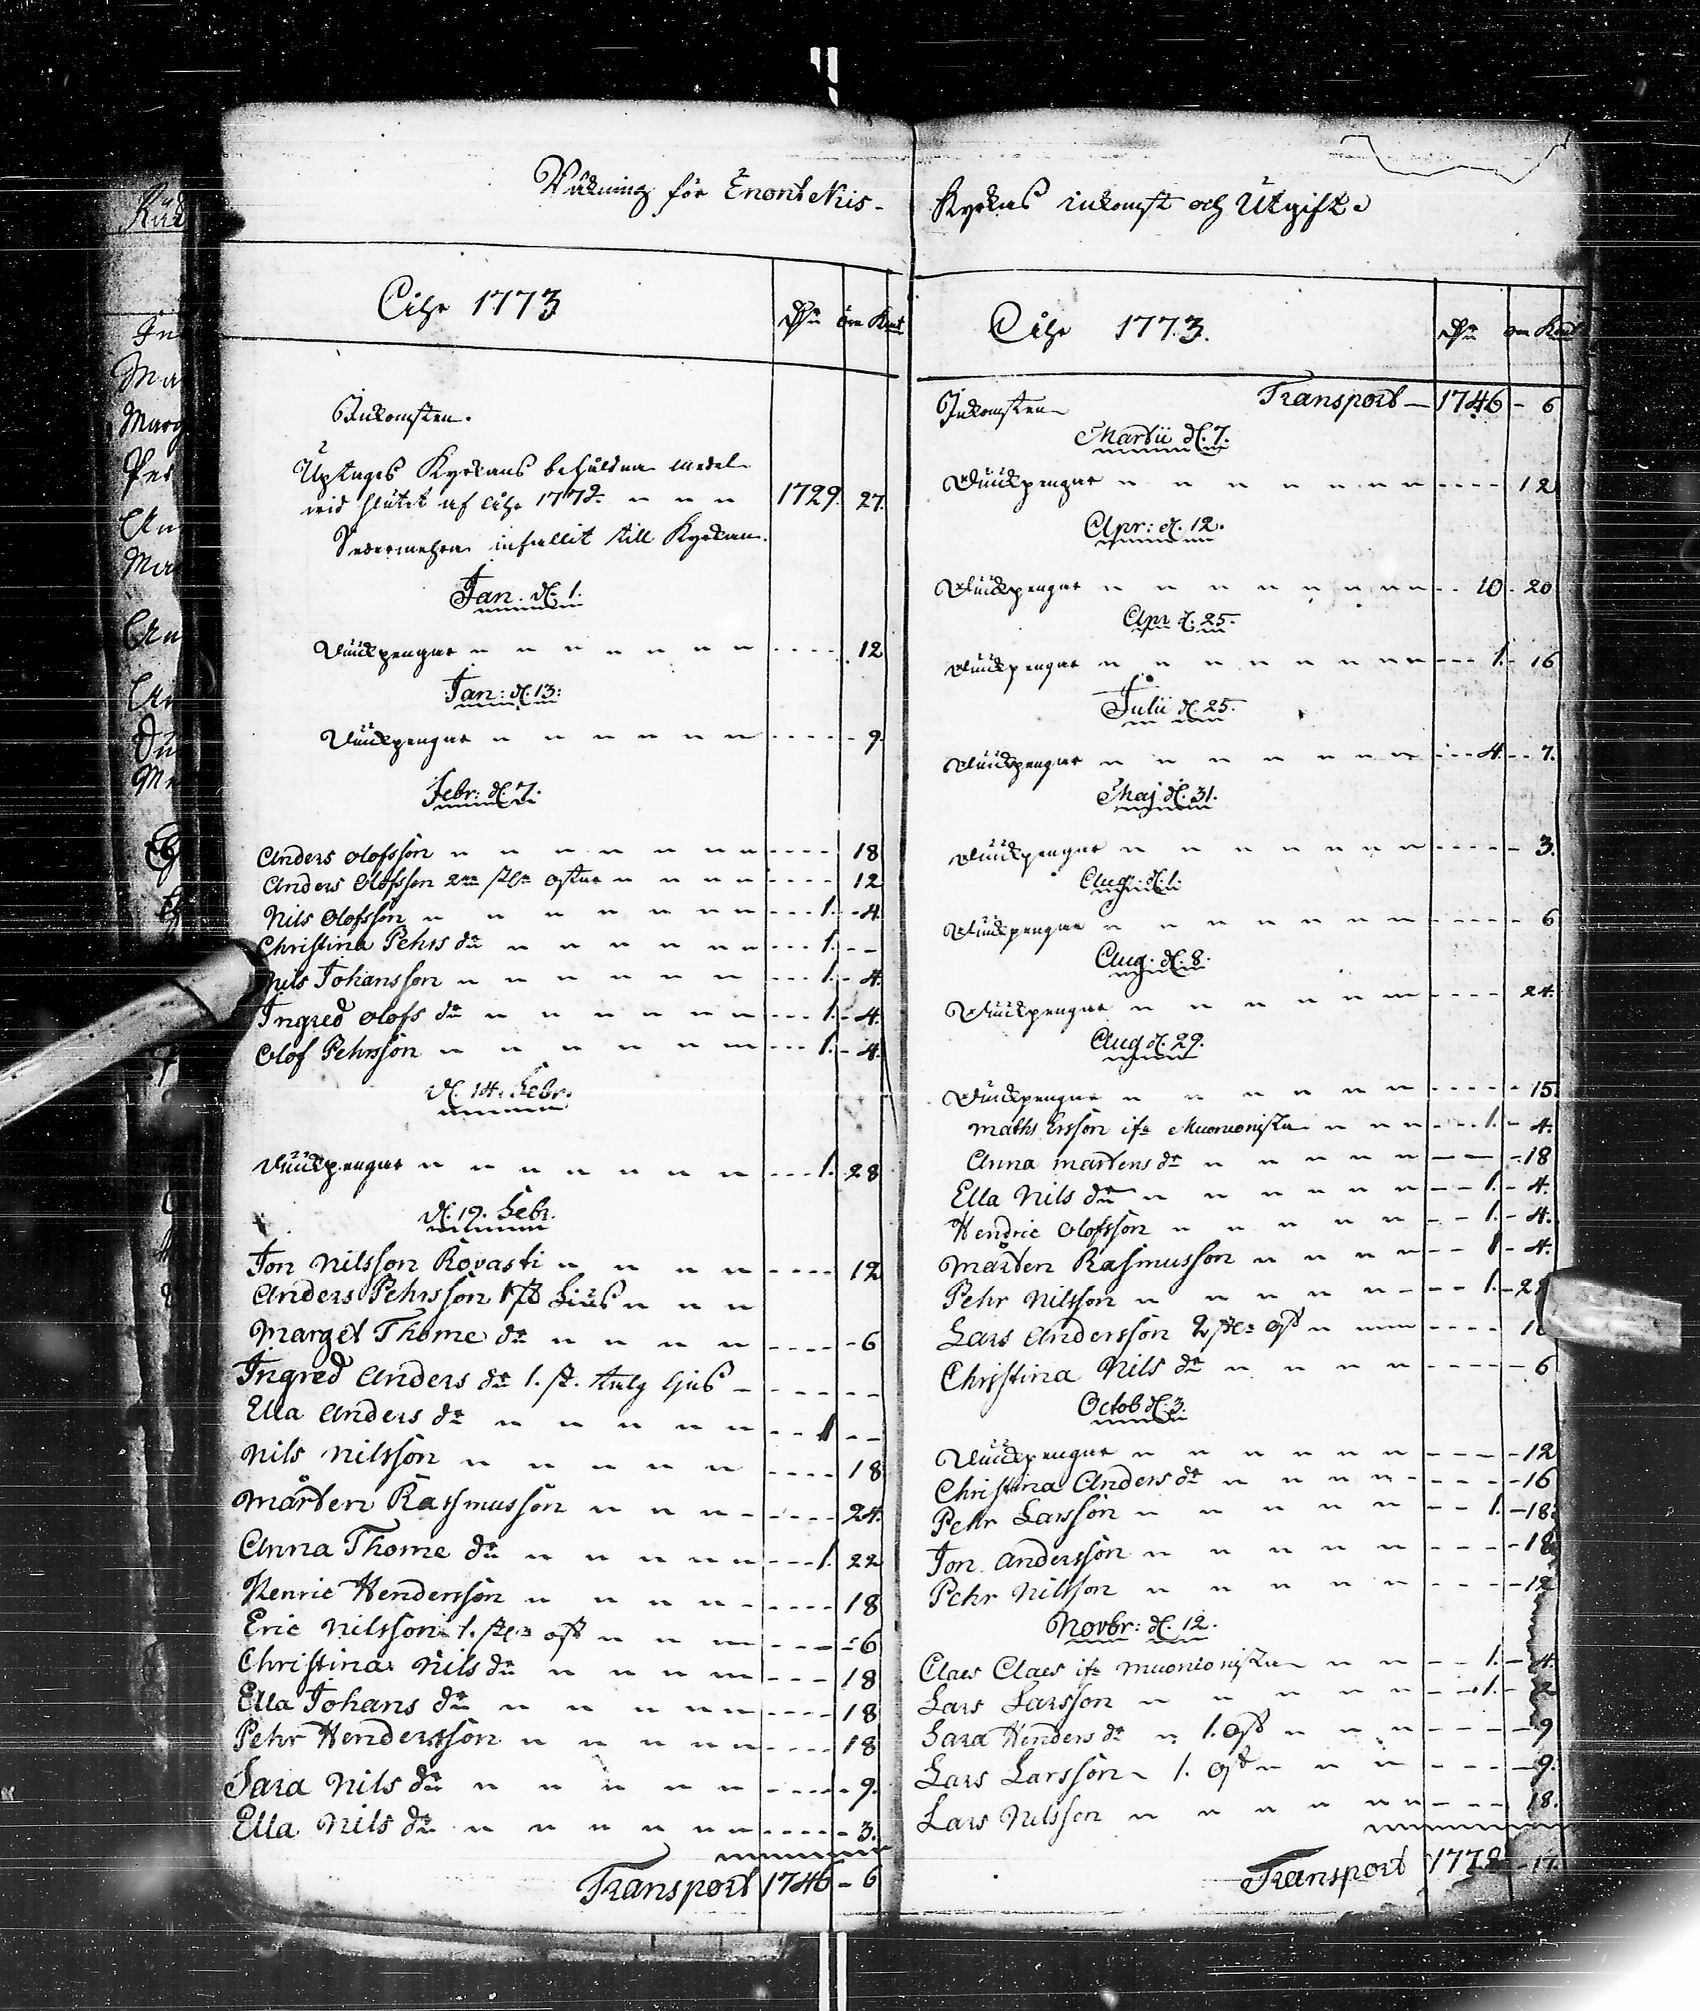 Räkning för Enontekis-
Åhr 1773
Dlr öre Kmt
Inkomsten.
Uptages Kyrkans behåldna medel
wid slutet af åhr 1772. 1729. 27.
Sedermehra infallit till Kyrkan.
Jan. d. 1.
12
Jan: d. 13:
9.
Febr: d. 7.
Anders Olofsson 18
Anders Olofsson 2ne st. ostar 12
Nils Olofsson 1. 4.
Christina Pehrs dr 1.
Nils Johansson 1. 4.
Ingred Olofs dr 1. 4.
Olof Pehrsson 1. 4.
d. 14. Febr.
1. 28
d. 19. Febr.
Jon Nilsson Rovasti 12
Anders Pehrsson 1 st Lius
Marget Thome dr 6
Ingred Anders dr 1. st. talg ljus
Ella Anders dr 1
Nils Nilsson 18
Mårten Rassmusson 24.
Anna Thome dr 1. 22
Henric Hendersson 18
Eric Nilsson 1. st. ost 6
Christina Nils dr 18
Ella Johans dr 18
Pehr Hendersson 18
Sara Nils dr 9.
Ella Nils dr 3.
Transport 1746 - 6
Kyrkas inkomst och Utgift
Åhr 1773.
Dlr öre Kmt
Inkomsten Transport 1746 - 6
Martii d. 7.
12
Apr: d. 12.
10 20
Apr d. 25.
1. 16
Julii d. 25.
4. 7.
Maj d. 31.
3.
Aug. d. 1.
6
Aug. d. 8.
24.
Aug d. 29.
15.
Maths Ersson ifr Muonioniska 1. 4.
Anna Mårtens dr 18
Ella Nils dr 1. 4.
Hendric Olofsson 1. 4.
Mårten Rasmusson 1 4.
Pehr Nilsson 1.
Lars Andersson 2 st ost
Christina Nils dr 6
Octob d. 3.
12
Christina Anders dr 16
Pehr Larsson 1. 18.
Jon Andersson 18
Pehr Nilsson 12
Novbr: d. 12.
Claes Claes ifr Muonioniska 1. 4.
Lars Larsson 1. 2
Sara Henders dr 1. ost 9
Lars Larsson 1. ost 9.
Lars Nilsson 18.
Transport 1778 - 17.